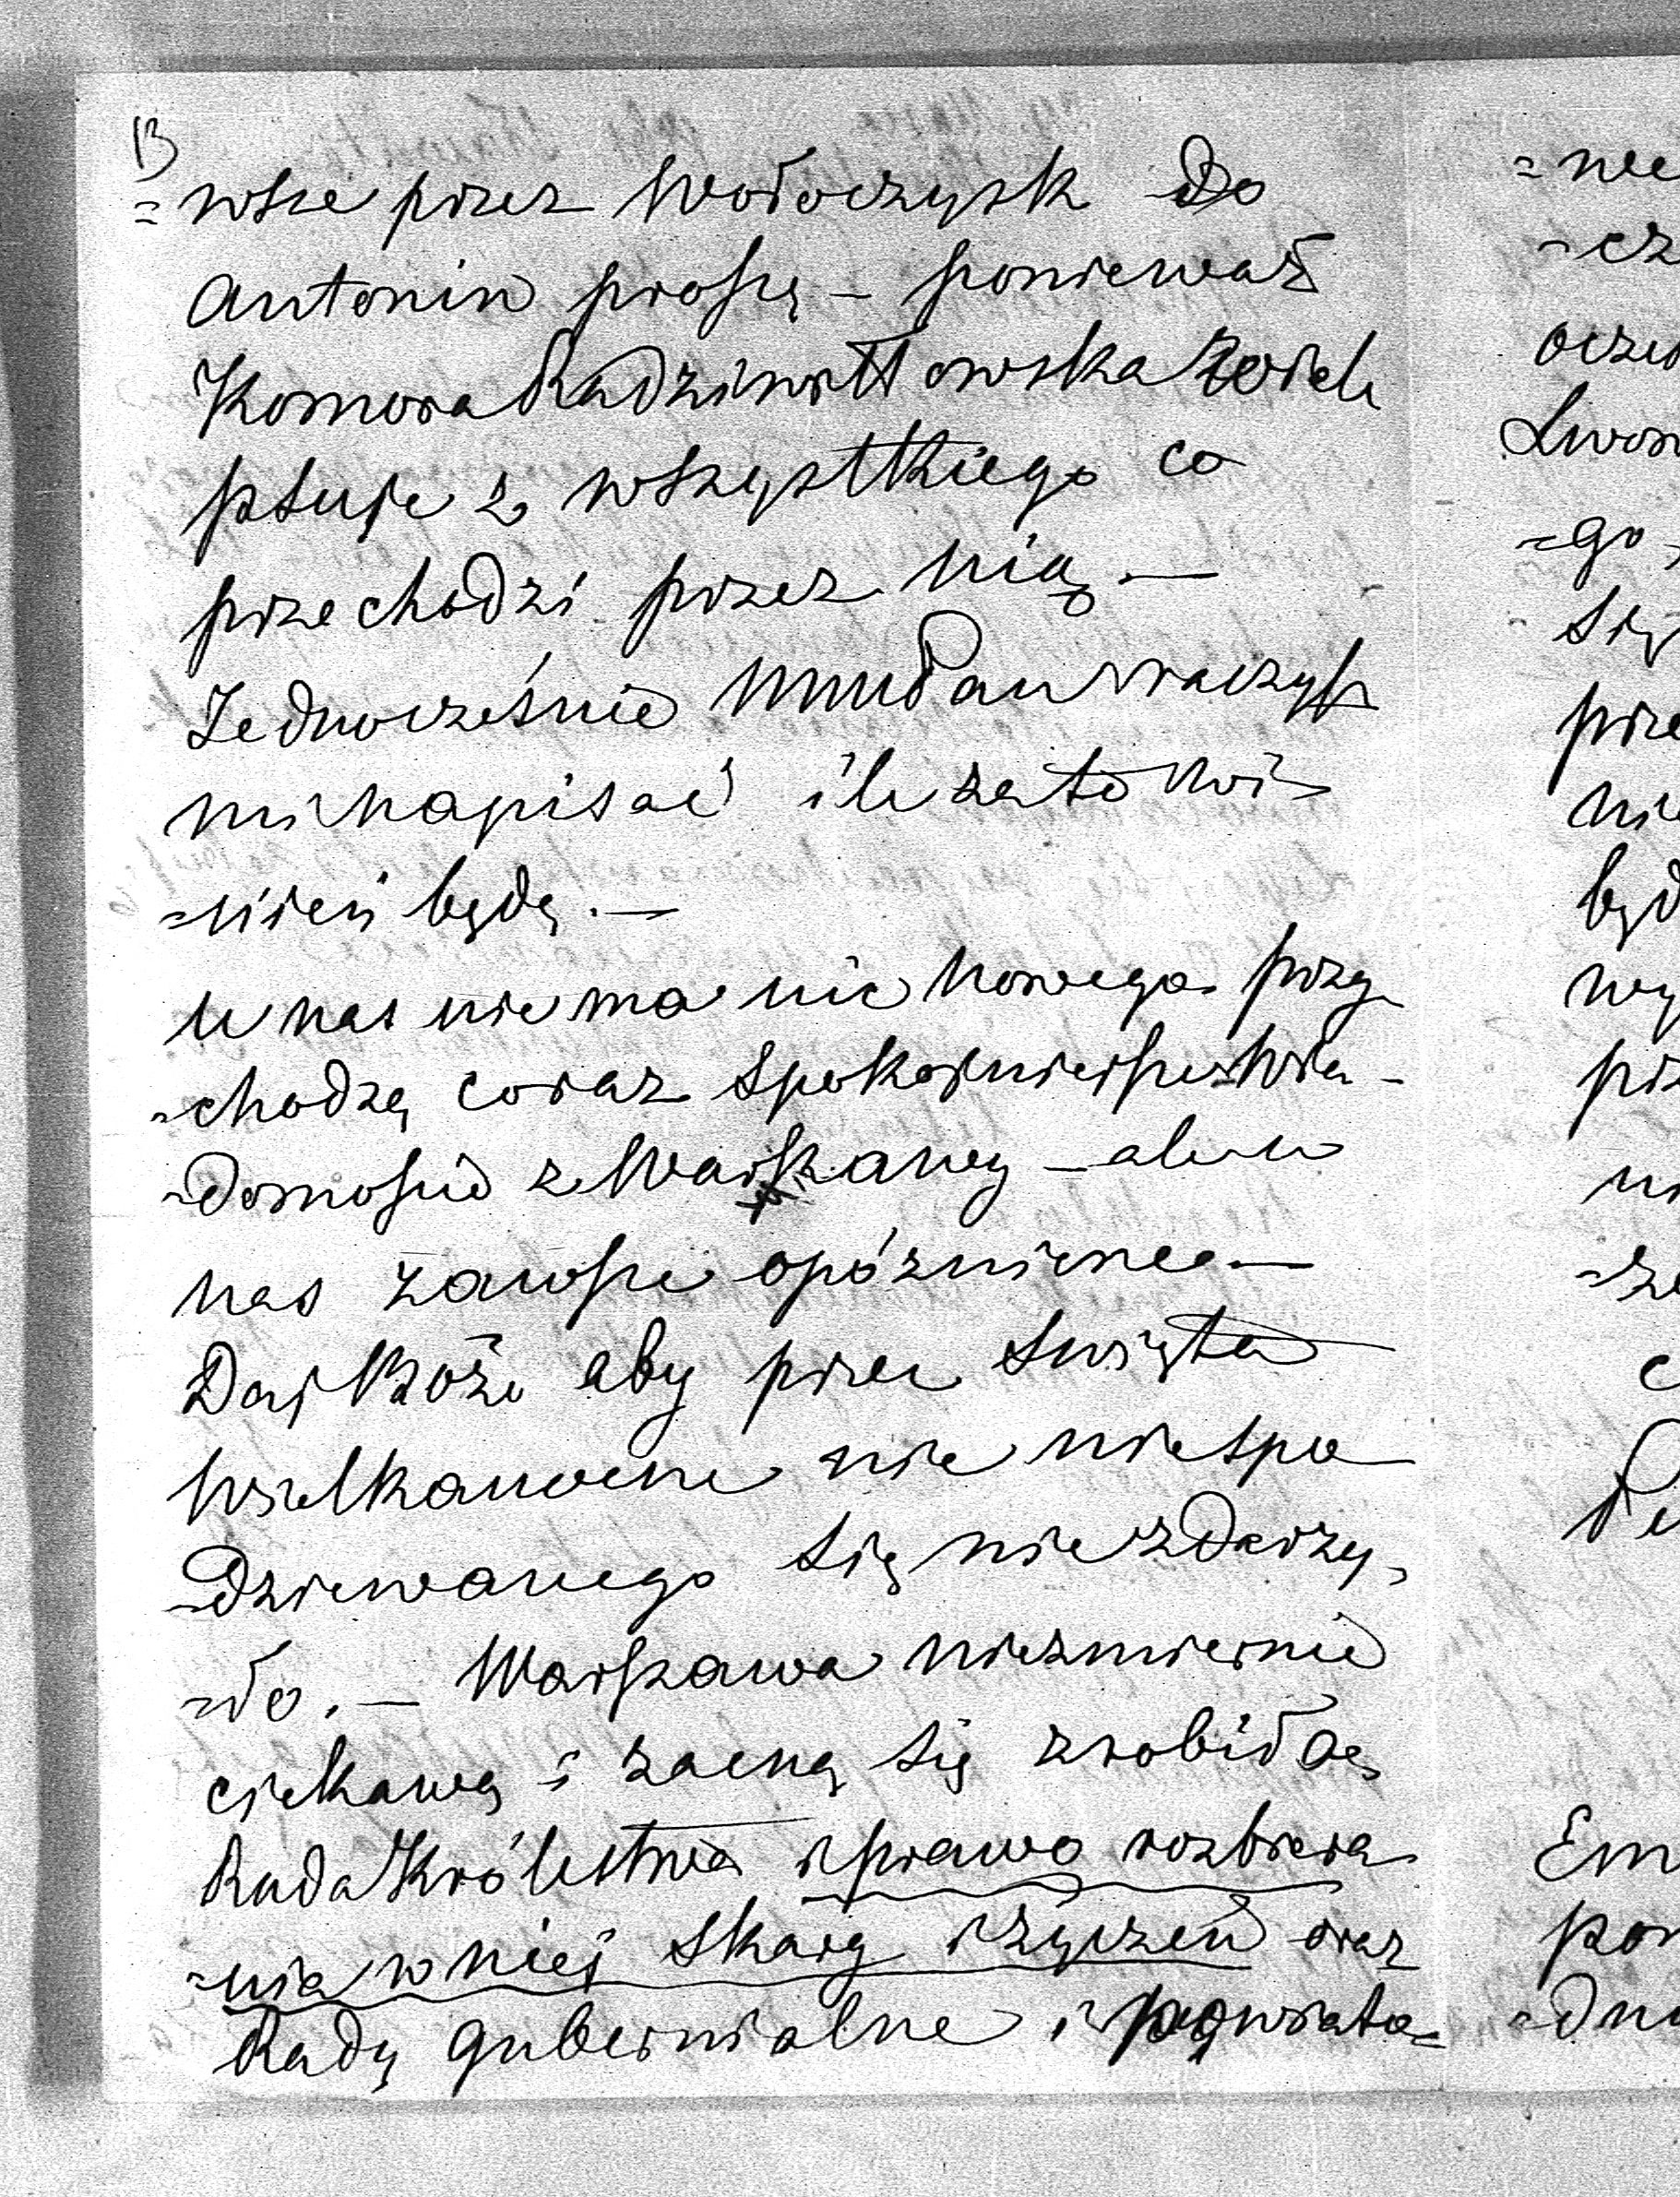 13
= wsze przez Wołoczysk do
Antonin proszę – ponieważ
Komora Radziwiłłowska wiele
psuje z wszystkiego co
przechodzi przez nią. —
Jednocześnie WmuPan raczysz
mi napisać ile za to wi-
=nien będę. —
U nas nie ma nic nowego przy-
=chodzą coraz spokojniejsze wia-
=domości z Warszawy – ale u
nas zawsze opóźnione —
Daj Boże aby przez Swięta
Wielkanocne nic niespo-
=dziewanego się nie zdarzy-
=ło. — Warszawa niezmiernie
ciekawą i zacną się zrobiła
Rada Królestwa i prawo rozbiera-
=nia w niej skarg i życzeń oraz
Rady gubernialne i powiato=
= we
= cz
=go
się
prze
nie
będ
wy
Em
=dn